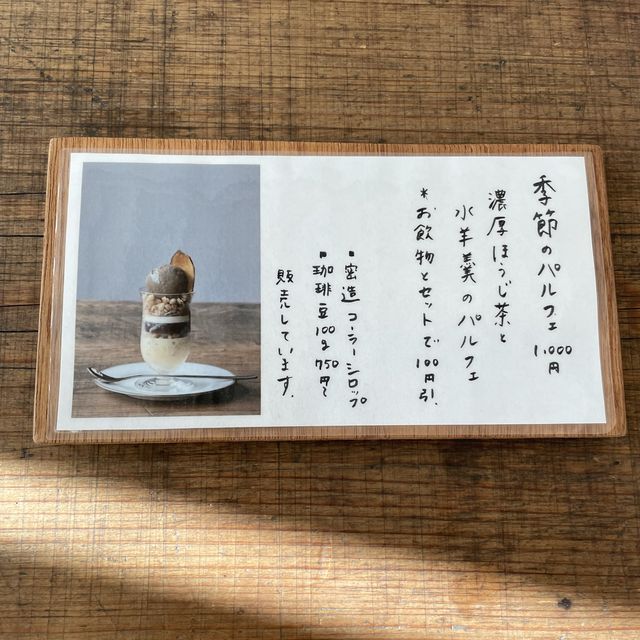 季節のパルフェ 1,000円
濃厚ほうじ茶と
水羊羹のパルフェ
*お飲物とセットで100円引.
▪密造コーラーシロップ
▪珈琲豆100g 750円〜
販売しています.